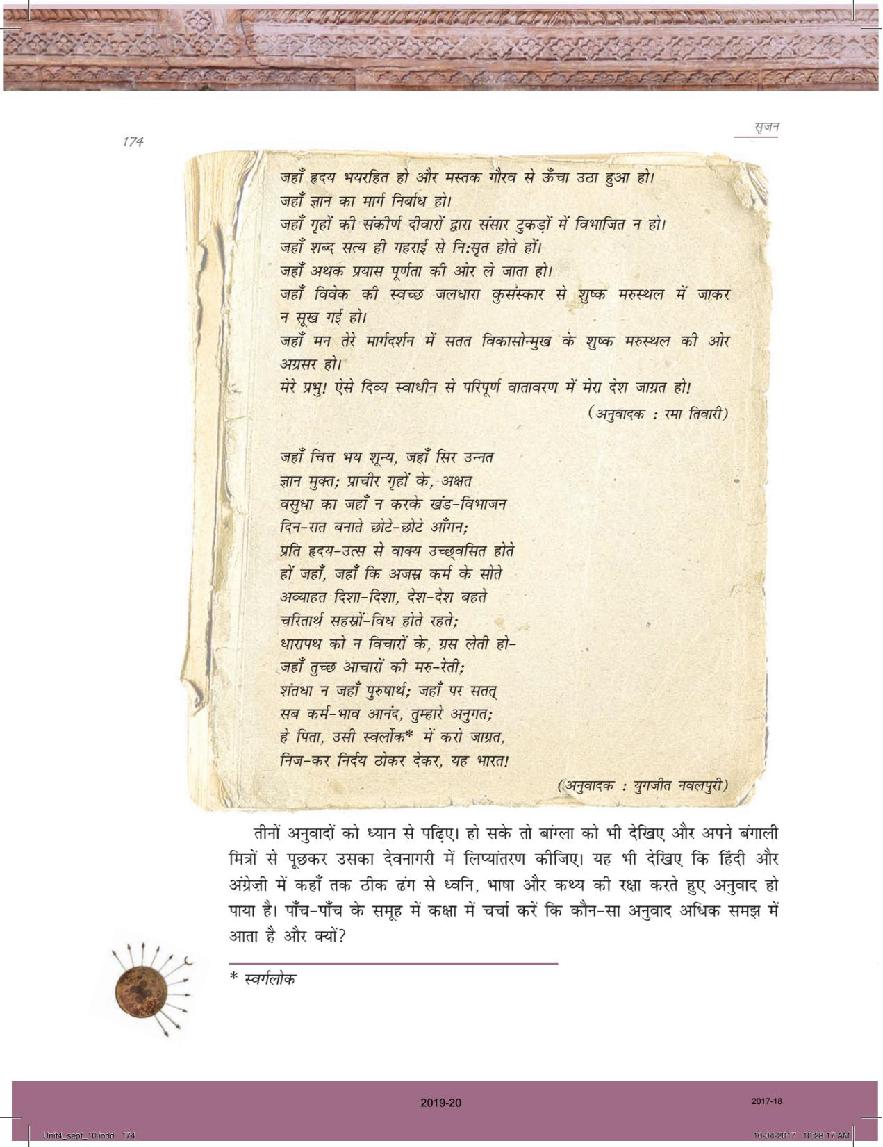 सृजन
174
जहाँ हृदय भयरहित हो और मस्तक गौरव से ऊँचा उठा हुआ हो।
जहाँ ज्ञान का मार्ग निर्बाध हो।
जहाँ गृहों की संकीर्ण दीवारों द्वारा संसार टुकड़ों में विभाजित न हो।
जहाँ शब्द सत्य ही गहराई से नि:सृत होते हों।
जहाँ अथक प्रयास पूर्णता की ओर ले जाता हो।
जहाँ विवेक की स्वच्छ जलधारा कुसंस्कार से शुष्क मरुस्थल में जाकर
न सूख गई हो।
जहाँ मन तेरे मार्गदर्शन में सतत विकासोन्मुख के शुष्क मरुस्थल की ओर
अग्रसर हो।
मेरे प्रभु! ऐसे दिव्य स्वाधीन से परिपूर्ण वातावरण में मेरा देश जाग्रत हो!
(अनुवादक : रमा तिवारी)
जहाँ चित्त भय शून्य, जहाँ सिर उन्नत
ज्ञान मुक्त; प्राचीर गृहों के, अक्षत
वसुधा का जहाँ न करके खंड-विभाजन
दिन-रात बनाते छोटे-छोटे आँगन;
प्रति हृदय-उत्स से वाक्य उच्छ्वसित होते
हों जहाँ, जहाँ कि अजस्र कर्म के सोते
अव्याहत दिशा-दिशा, देश-देश बहते
चरितार्थ सहस्रों-विध होते रहते;
धारापथ को न विचारों के, ग्रस लेती हो-
जहाँ तुच्छ आचारों की मरु-रेती;
शंतधा न जहाँ पुरुषार्थ; जहाँ पर सतत्
सब कर्म-भाव आनंद, तुम्हारे अनुगत;
हे पिता, उसी स्वर्लोक* में करो जाग्रत,
निज-कर निर्दय ठोकर देकर, यह भारत!
(अनुवादक : युगजीत नवलपुरी)
तीनों अनुवादों को ध्यान से पढ़िए। हो सके तो बांग्ला को भी देखिए और अपने बंगाली
मित्रों से पूछकर उसका देवनागरी में लिप्यांतरण कीजिए। यह भी देखिए कि हिंदी और
अंग्रेज़ी में कहाँ तक ठीक ढंग से ध्वनि, भाषा और कथ्य की रक्षा करते हुए अनुवाद हो
पाया है। पाँच-पाँच के समूह में कक्षा में चर्चा करें कि कौन-सा अनुवाद अधिक समझ में
आता है और क्यों?
* स्वर्गलोक
2019-20
2017-18
Unit4_sept_10.indd 174